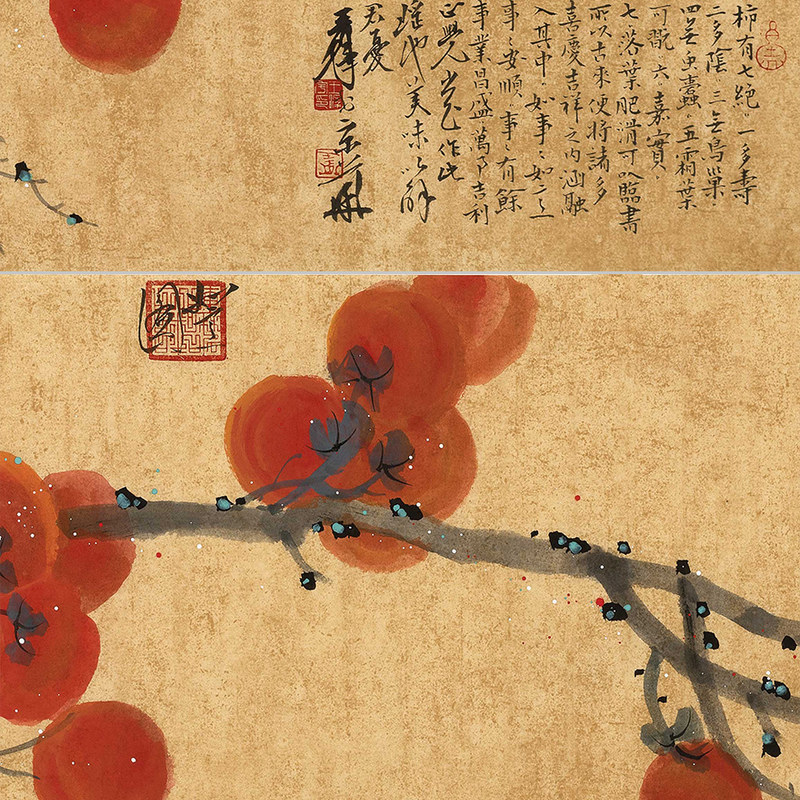 柿有七絕一多壽
二多陰三無鳥巢
四無虫蠹五霜葉
可翫六嘉實
七落葉肥滑可以臨書
所以古來便將諸多
喜慶吉祥之内涵融
入其中如事〻如
事〻安順事〻有餘
事業昌盛萬事吉利
作此
瑤池美味以解
君憂